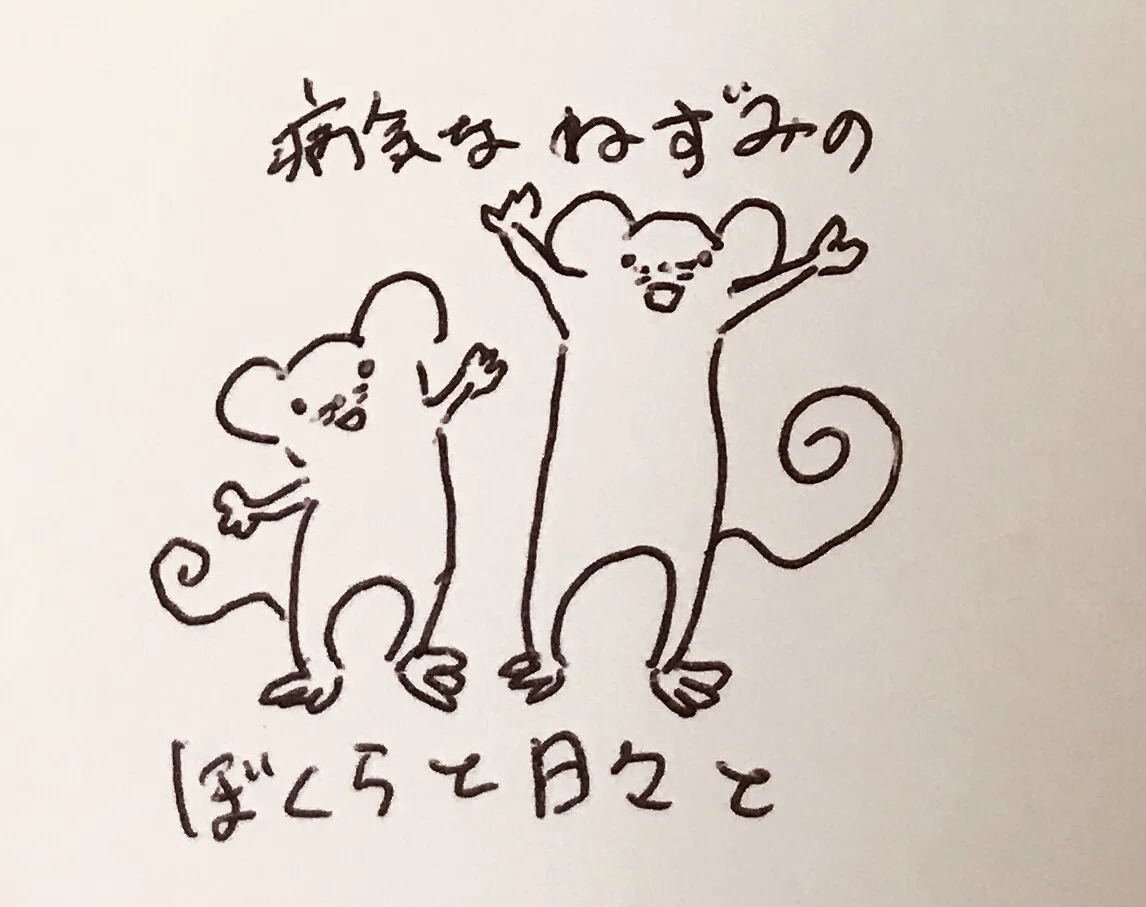 病気なねずみの
ぼくらと日々と